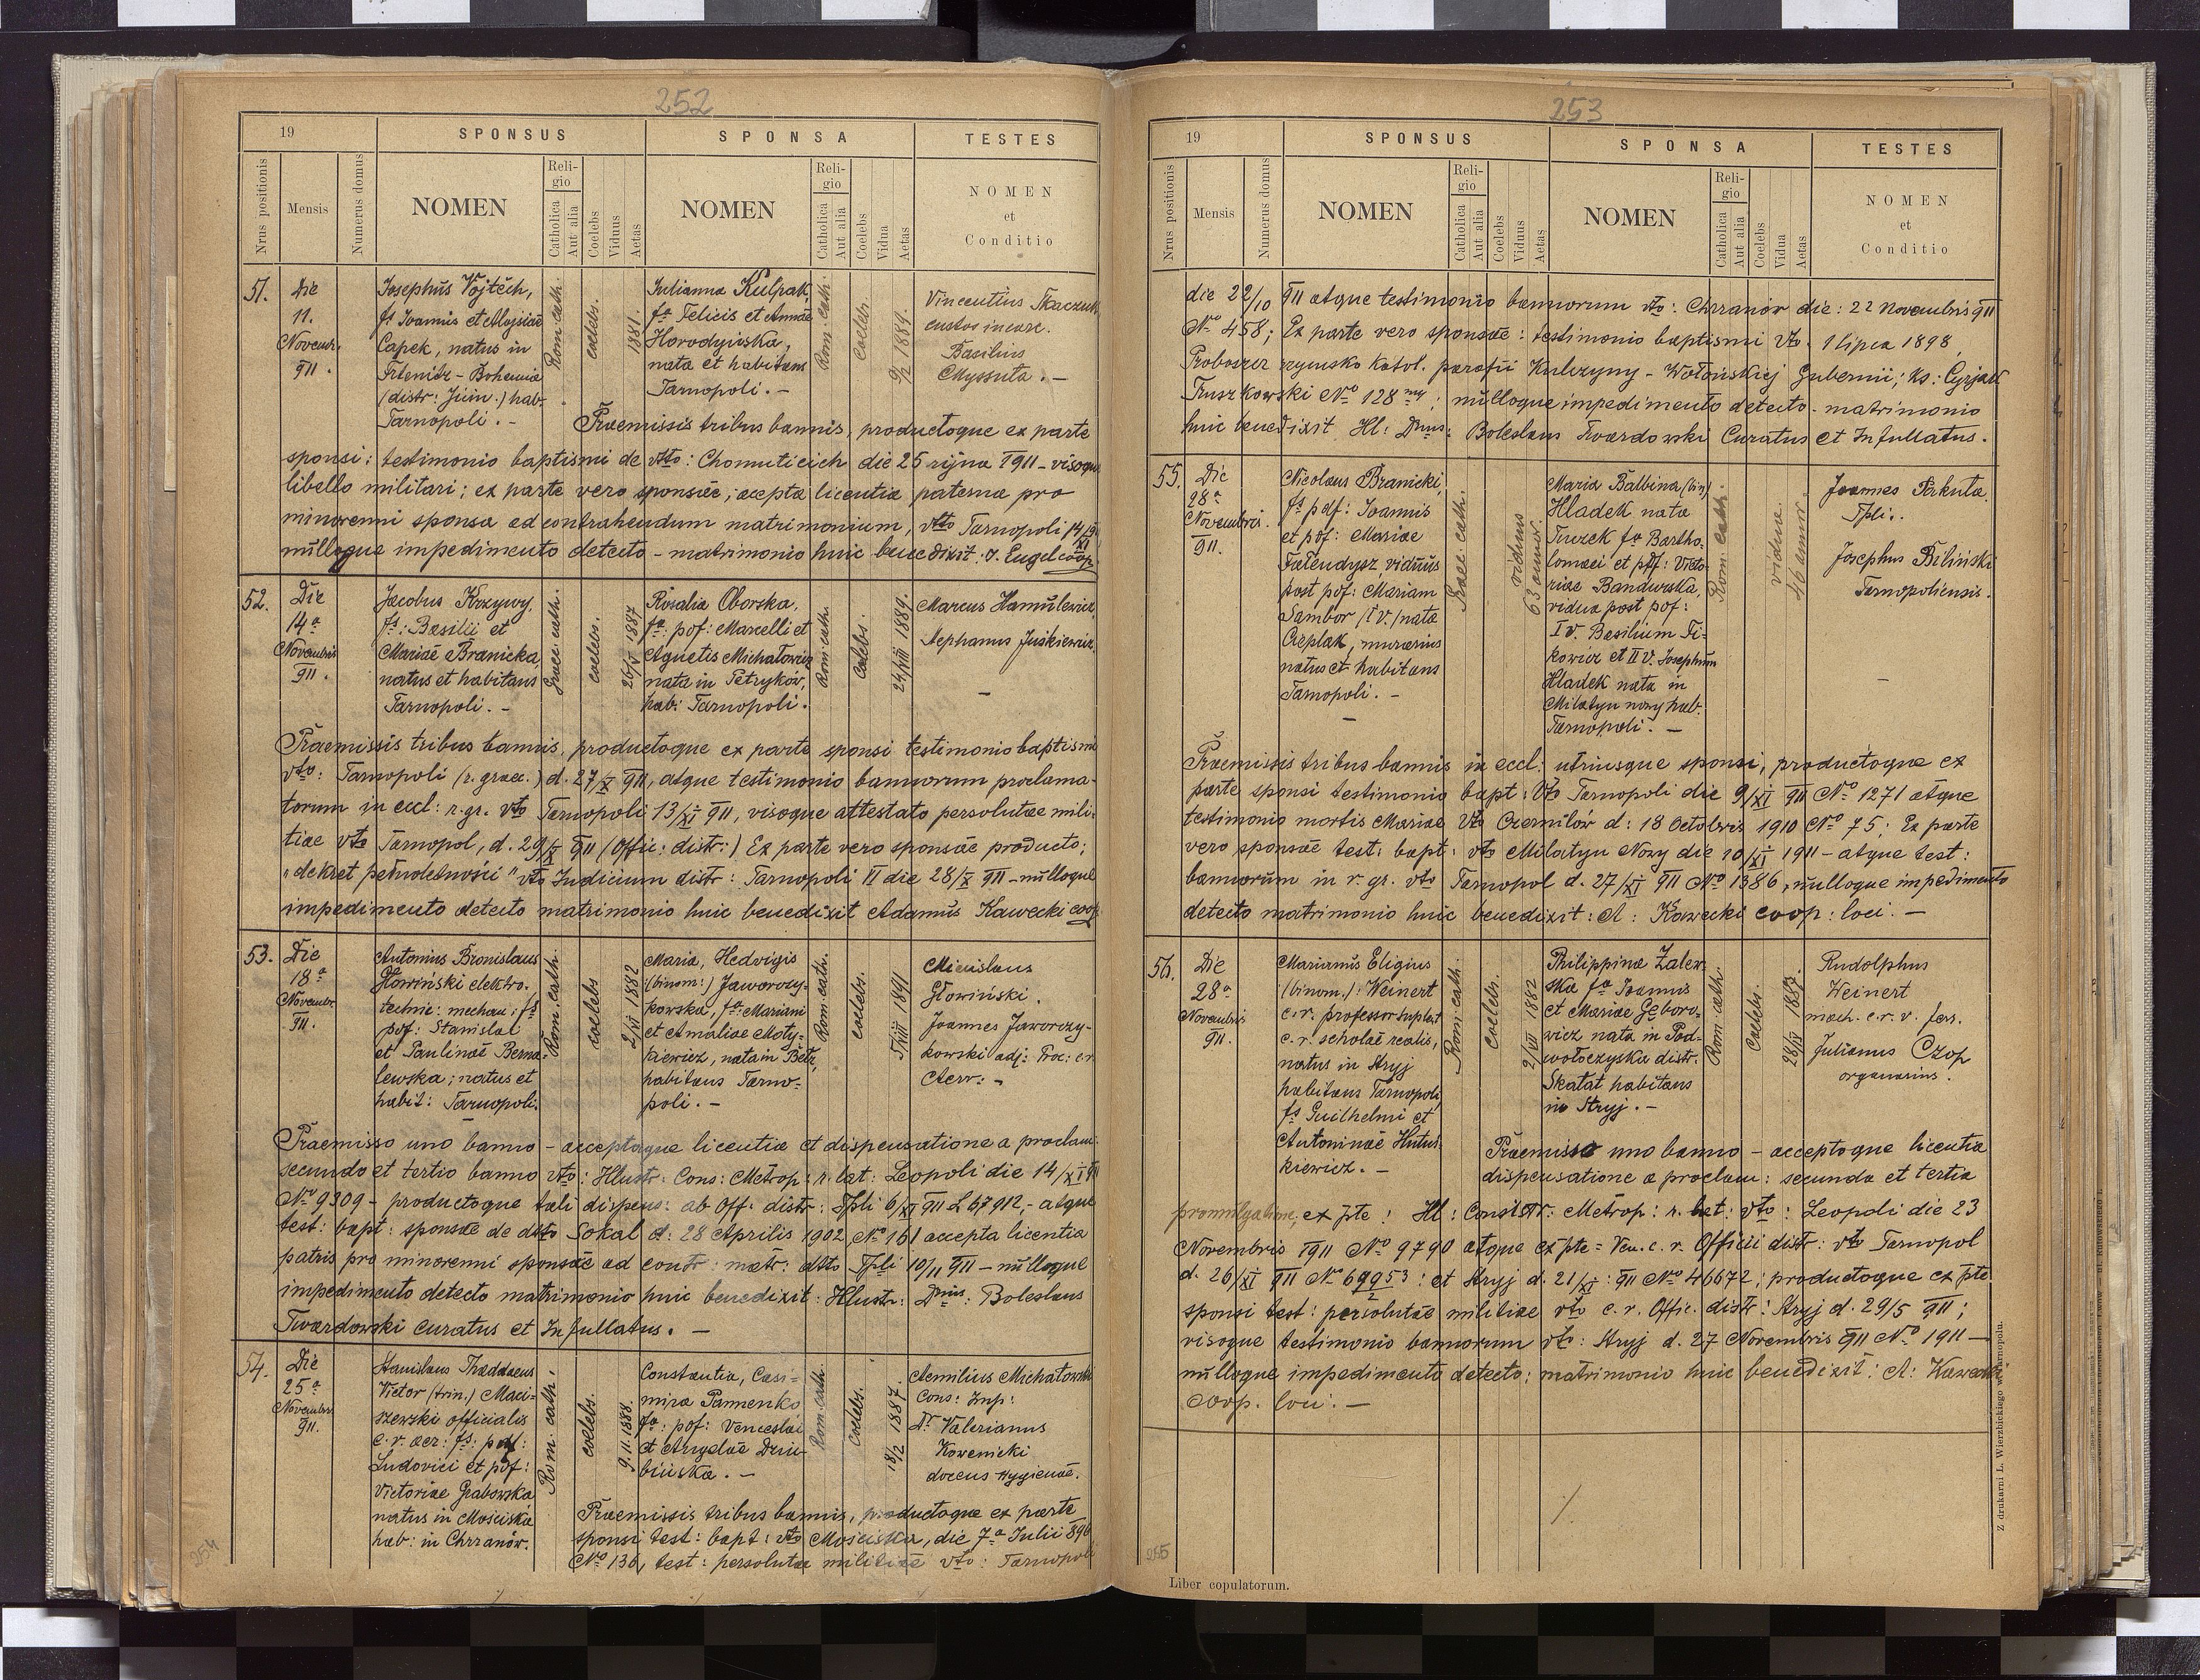 252
19
SPONSUS
SPONSA
TESTES
Nrus positionis
Mensis
Numerus domus
NOMEN
Religio
Catholica
Aut alia
Coelebs
Viduus
Aetas
NOMEN
Religio
Catholica
Aut alia
Coelebs
Vidua
Aetas
NOMEN
et
Conditio
51.
Die
11.
Novembr.
911.
Josephus Vojtěch,
fs Joannis et Alojsiae
Capek, natus in
Trtenitz - Bohemia
(distr: Jičin.) hab.
Tarnopoli. -
Rom. cath.
coelebs.
1881.
Julianna Kulpak,
fa Felicis et Annae
Horodyńska,
nata et habitans
Tarnopoli. -
Rom. cath.
Coelebs.
9/2 1889.
Vincentius Tkaczuk
custos incarc.
Basilius
Myssuta. -
Praemissis tribus bannis, productoque ex parte
sponsi: testimonio baptismi de dtto: Chomuticich die 25 rijna 1911 - visoque
libello militari; ex parte vero sponsae, accepta licentia paterna pro
minorenni sponsa ad contrahendum matrimonium, dtto Tarnopoli 14/9
nulloque impedimento detecto - matrimonio huic benedixit. J. Engel coop.
52.
Die
14a
Novembris
911.
Jacobus Krzywy,
fs: Basilii et
Mariae Branicka,
natus et habitans
Tarnopoli. -
Graec. cath.
coelebs.
26/V 1887
Rosalia Oborska,
fa: pof: Marcelli et
Agnetis Michałowicz
nata in Petryków,
hab: Tarnopoli.
Rom. cath.
Coelebs.
24/VIII 1889.
Marcus Hamulewicz,
Stephanus Juśkiewicz.
-
Praemissis tribus bannis, productoque ex parte sponsi testimonio baptismi
dtto: Tarnopoli (r. graec.) d. 27/X 911, atque testimonio bannorum proclama-
torum in eccl: r. gr. dtto Tarnopoli 13/XI 911, visoque attestato persolutae mili-
tiae dtto Tarnopol, d. 29/X 911 (Offic: distr:) Ex parte vero sponsae producto;
"dekret pełnoletności" dtto Judicium distr: Tarnopoli II die 28/X 911 - nulloque
impedimento detecto matrimonio huic benedixit Adamus Kawecki coop.
53.
Die
18a
Novembr.
911.
Antonius Bronislaus
Głowiński elektro.
technic: mechan: fs
pof: Stanislai
et Paulinae Berna-
lewska; natus et
habit: Tarnopoli.
Rom. cath.
coelebs
2/VI 1882
Maria, Hedvigis
(binom:) Jaworczy-
kowska, fa: Mariani
et Amaliae Moty-
kiewicz, nata in Bełz,
habitans Tarno-
poli. -
Rom. cath.
coelebs.
5/VIII 1891
Miecislaus
Głowiński.
Joannes Jaworczy-
kowski adj: Proc: c.r.
Aerr: -
Praemisso uno banno - acceptaque licentia et dispensatione a proclam:
secundo et tertio banno dtto: Illustr: Cons: Metrop: r. lat: Leopoli die 14/XI 911
No 9309 - productoque tali dispens: ab Off: distr: Tpli 6/XI 911 L 67912, - atque
test: bapt: sponsae de dtto Sokal d: 28 Aprilis 1902, No 161 accepta licentia
patris pro minorenni sponsae ad contr: matr: dtto Tpli 10/11 911 - nulloque
impedimento detecto matrimonio huic benedixit: Illustr: Dnus: Boleslaus
Twardowski curatus et Infullatus. -
54.
Die
25a
Novembris
911.
Stanislaus Thaddaeus
Victor (trin.) Maci-
szewski officialis
c.r. aer: fs: pof:
Ludovici et pof:
Victoriae Grabowska
natus in Mościska
hab: in Chrzanów.
Rom. cath.
coelebs.
9.11.1888.
Constantia, Casi-
mira Pannenko
fa: pof: Venceslai
et Angelae Dziu-
bińska. -
Rom. cath.
Coelebs.
18/2 1887.
Aemilius Michałowski
Cons: Imp:
Dr Valerianus
Kowenicki
docens Hygienae.
Praemissis tribus bannis, productoque ex parte
sponsi test: bapt: dtto Mościska, die 7a Julii 896
No 136, test: persolutae militiae dtto: Tarnopoli
254
253
19
SPONSUS
SPONSA
TESTES
Nrus positionis
Mensis
Numerus domus
NOMEN
Religio
Catholica
Aut alia
Coelebs
Viduus
Aetas
NOMEN
Religio
Catholica
Aut alia
Coelebs
Vidua
Aetas
NOMEN
et
Conditio
die 22/10 911 atque testimonio bannorum dtto: Chrzanów die: 22 Novembris 911
No 458; Ex parte vero sponsae: testimonio baptismi dtto. 1 lipca 1898,
Proboszcz rzymsko katol. parafii Kulczyny - Wołońskiej Gubernii; ks: Cyrjak
Truszkowski No 128my; nulloque impedimento detecto - matrimonio
huic benedixit Ill: Dnus: Boleslaus Twardowski Curatus et Infullatus.
55.
Die
28a
Novembris.
911.
Nicolaus Branicki,
fs pof: Joannis
et pof: Mariae
Falendysz, viduus
post pof: Mariam
Sambor (I v.) nata
Czeplak, murarius
natus et habitans
Tarnopoli. -
-
Graec. cath.
viduus
63 annor.
Maria Balbina (bin)
Hladek nata
Turzek fa Bartho-
lomaei et pof: Victo-
riae Bandurska,
vidua post pof:
I v. Basilium Fi-
kowicz et II v. Josephum
Hladek nata in
Milatyn nowy hab.
Tarnopoli. -
Rom. cath.
vidua.
46 annor.
Joannes Pirkuta.
Tpli.
Josephus Biliński
Tarnopoliensis.
-
Praemissis tribus bannis in eccl: utriusque sponsi, productoque ex
parte sponsi testimonio bapt: dtto Tarnopoli die 9/XI 911 No 1271 atque
testimonio mortis Mariae dtto Czernilów d: 18 Octobris 1910 No 75; Ex parte
vero sponsae test: bapt: dtto Milatyn Nowy die 10/XI 1911 - atque test:
bannorum in r. gr. dtto Tarnopol d. 27/XI 911 No 1386, nulloque impedimento
detecto matrimonio huic benedixit: A: Kawecki coop: loci. -
56.
Die
28a
Novembris
911.
Marianus Eligius
(binom.): Weinert
c.r. professor suplent
c.r. scholae realis,
natus in Stryj
habitans Tarnopoli,
fs Guilhelmi et
Antoninae Hutus-
kiewicz. -
Rom. cath.
Coelebs.
2/VII 1882
Philippina Zalew-
ska fa Joannis
et Mariae Geboro-
wicz nata in Pod-
wołoczyska distr.
Skałat habitans
in Stryj. -
Rom. cath.
Coelebs.
Rudolphus
Weinert
mach. c.r. v. ferr.
Julianus Czop
organarius.
Praemisso uno banno - acceptoque licentia
dispensatione a proclam: secunda et tertia
promulgatione, ex pte: Ill: Constr: Metrop: r. lat: dtto: Leopoli die 23
Novembris 1911 No 9790 atque ex pte = Ven. c. r. Officii distr: dtto Tarnopol
d. 26/XI 911 No 69953: et Stryj d. 21/XI: 911 No 46672; productoque ex pte
sponsi test: persolutae militiae dtto c.r. Offic. distr: Stryj d. 29/5 911;
visoque testimonio bannorum dtto: Stryj d. 27 Novembris 911 No 1911 -
nulloque impedimento detecto; matrimonio huic benedixit: A: Kawecki
coop. loci. -
255
Liber copulatorum.
Z drukarni L. Wierzbickiego w Tarnopolu.